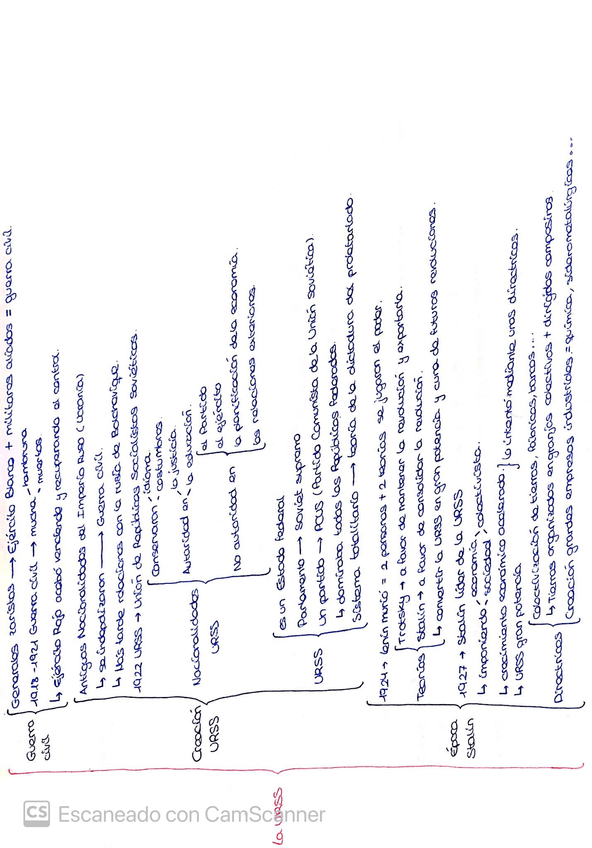 La URSS
Guerra civil
Generales zaristas → Ejército Blanco + militares aliados = guerra civil.
1918 - 1921 Guerra civil → mucha - hambruna
- muertos
↳ Ejército Rojo acabó venciendo y recuperando el control.
Creación URSS
Antiguas Nacionalidades del Imperio Ruso (Ucrania)
↳ se independizaron → Guerra civil.
↳ Más tarde relaciones con la rusia de Bolchevique.
1922 URSS → Unión de Repúblicas Socialistas Soviéticas.
Nacionalidades URSS
Conservaron - idioma
- costumbres.
Autoridad en - la justicia.
- la educación.
No autoridad en
el Partido
el ejército
la planificación de la economía.
las relaciones exteriores.
URSS
es un Estado federal
Parlamento → Soviet supremo
Un partido → PCUS (Partido Comunista de la Unión Soviética)
↳ dominaba todas las Repúblicas Federadas.
Sistema totalitario → teoría de la dictadura del proletariado.
Época Stalin
1924 → Lenin murió = 2 personas + 2 teorías se jugaron el poder.
Teorías
Trotsky → a favor de mantener la revolución y exportarla.
Stalin → a favor de consolidar la revolución.
↳ convertir la URSS en gran potencia y cuna de futuras revoluciones.
1927 → Stalin líder de la URSS
↳ Imponiendo - economía
- sociedad, colectivista.
↳ crecimiento económico acelerado
↳ URSS gran potencia
lo intentó mediante unas directrices.
Directrices
Colectivización de tierras, fábricas, bancos...
↳ Tierras organizadas en granjas colectivas + dirigidas campesinos
Creación grandes empresas industriales = química, siderometalúrgicas...
CS Escaneado con CamScanner